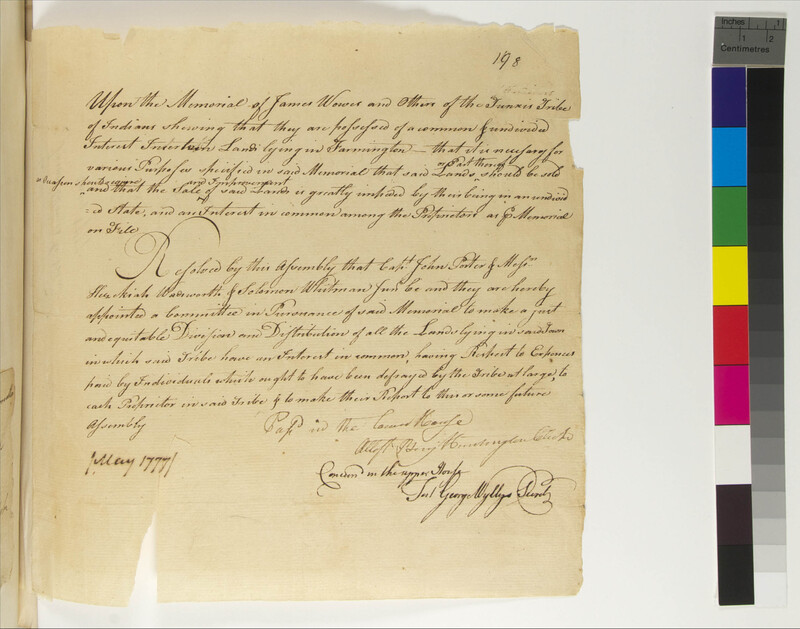 198
Upon the Memorial of James Wowus and Others of the Tunxis Tribe
of Indians shewing that they are possessed of a common & undivided
Interest in Lands lying in Farmington — that it is necessary for
various Purposes specified in said Memorial that said Lands or Part thereof should be sold
and that the Sale and Improvement of said Lands is greatly impeded by their being in an undivid
=ed State, and an Interest in common among the Proprietors as Memorial
on File
Resolved by this Assembly that Capt John Porter & Messrs
Hezekiah Wadsworth & Solomon Whitman Junr be and they are hereby
appointed a Committee in Pursuance of said Memorial to make a just
and equitable Division and Distribution of all the Lands lying in said Town
in which said Tribe have an Interest in common, having Respect to Expences
paid by Individuals which ought to have been defrayed by the Tribe at large, to
each Proprietor in said Tribe & to make their Report to this or some future
Assembly
Passd in the Lower House
Attest Benj Huntington Clerk
[May 1777]
Concurrd in the upper House
Test George Wyllys Secrety
Inches
1
1
2
Centimetres